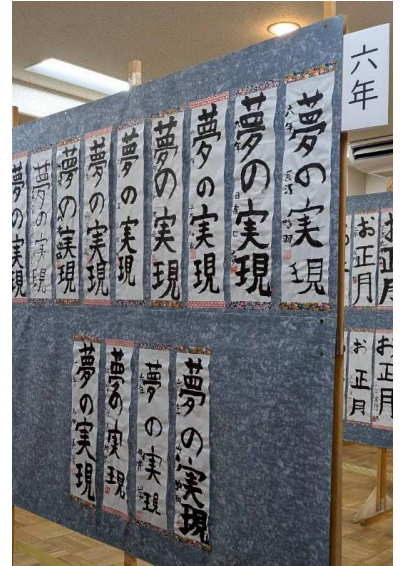 六年
夢の実現
夢の実現
夢の実現
夢の実現
夢の実現
夢の実現
夢の実現
夢の実現
夢の実現
夢の実現
夢の実現
夢の実現
夢の実現
お正月
お正月
お正月
お正月